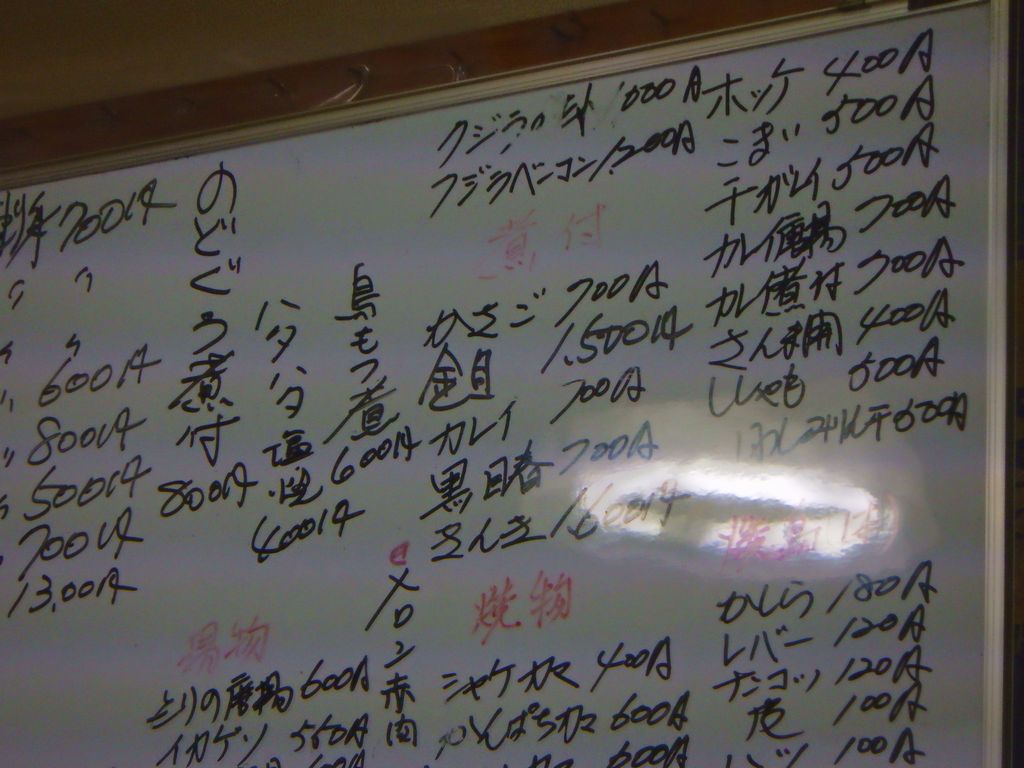 ホッケ 400円
こまい 500円
干ガレイ 500円
カレイ唐揚 700円
カレイ煮付 700円
さんま開 400円
ししゃも 500円
干 600円
かしら 180円
レバー 120円
ナンコツ 120円
100円
ハツ 100円
クジラ 1000円
クジラベーコン 1,200円
煮付
かさご 700円
金目 1,500円
カレイ 700円
黒目春 700円
きんき 1,600円
焼物
シャケカマ 400円
かんぱちカマ 600円
600円
鳥もつ煮 600円
メロン 赤肉
ハタハタ塩焼 400円
のどぐろ煮付 800円
揚物
とりの唐揚 600円
イカゲソ 550円
700円
〃 〃
〃 〃
〃 600円
〃 800円
500円
700円
1300円